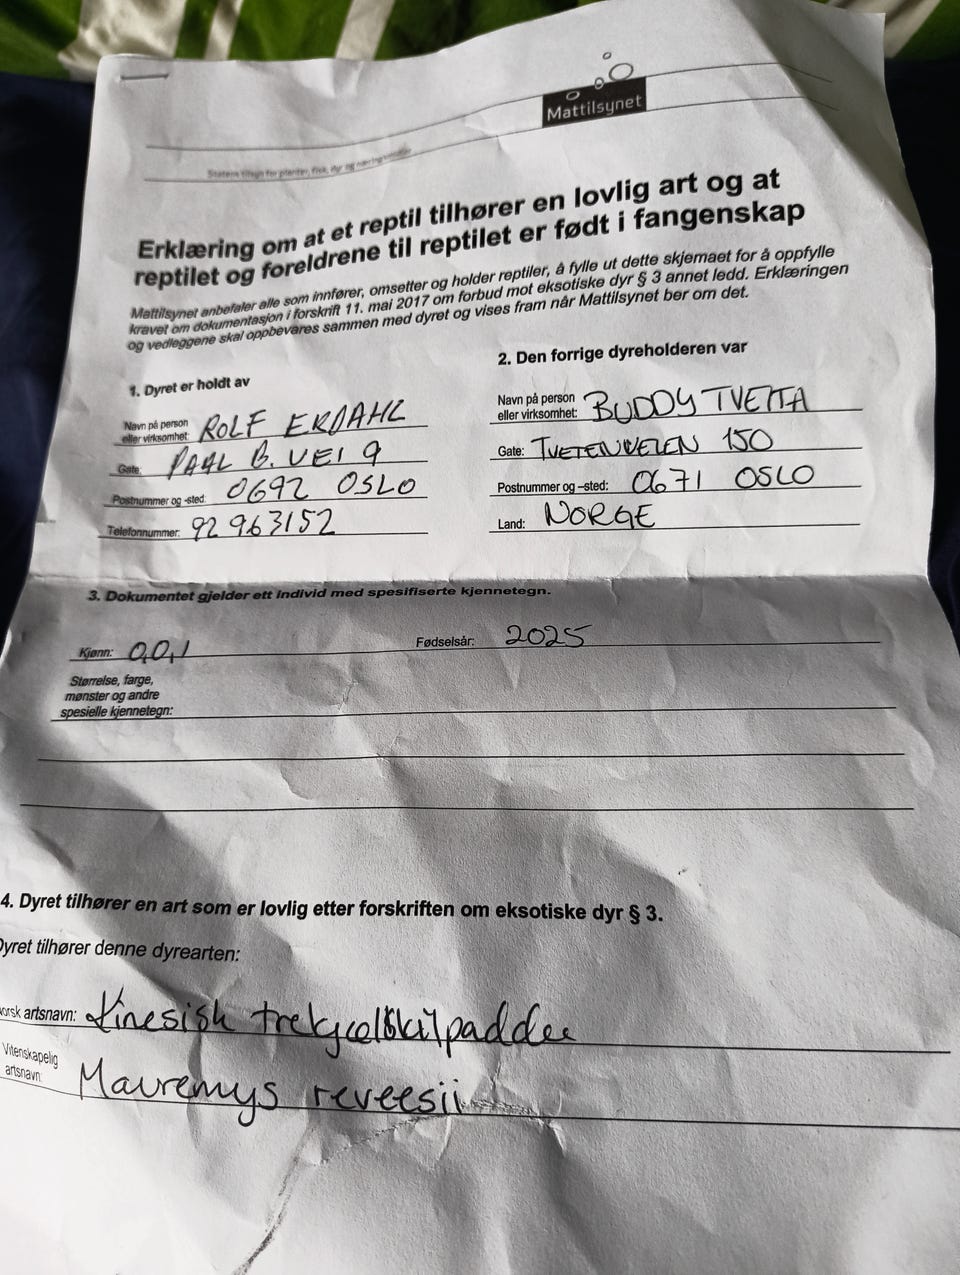 Mattilsynet
Statens tilsyn for planter, fisk, dyr og næringsmidler
Erklæring om at et reptil tilhører en lovlig art og at
reptilet og foreldrene til reptilet er født i fangenskap
Mattilsynet anbefaler alle som innfører, omsetter og holder reptiler, å fylle ut dette skjemaet for å oppfylle
kravet om dokumentasjon i forskrift 11. mai 2017 om forbud mot eksotiske dyr § 3 annet ledd. Erklæringen
og vedleggene skal oppbevares sammen med dyret og vises fram når Mattilsynet ber om det.
1. Dyret er holdt av
Navn på person
eller virksomhet: ROLF ERDAHL
Gate: PAAL B. VEI 9
Postnummer og -sted: 0692 OSLO
Telefonnummer: 92 963152
2. Den forrige dyreholderen var
Navn på person
eller virksomhet: BUDDY TVETTA
Gate: TVETENVEIEN 150
Postnummer og –sted: 0671 OSLO
Land: NORGE
3. Dokumentet gjelder ett individ med spesifiserte kjennetegn.
Kjønn: 0,0,1 Fødselsår: 2025
Størrelse, farge,
mønster og andre
spesielle kjennetegn:
4. Dyret tilhører en art som er lovlig etter forskriften om eksotiske dyr § 3.
Dyret tilhører denne dyrearten:
Norsk artsnavn: Kinesisk trekjølskilpadde
Vitenskapelig
artsnavn: Mauremys reveesii